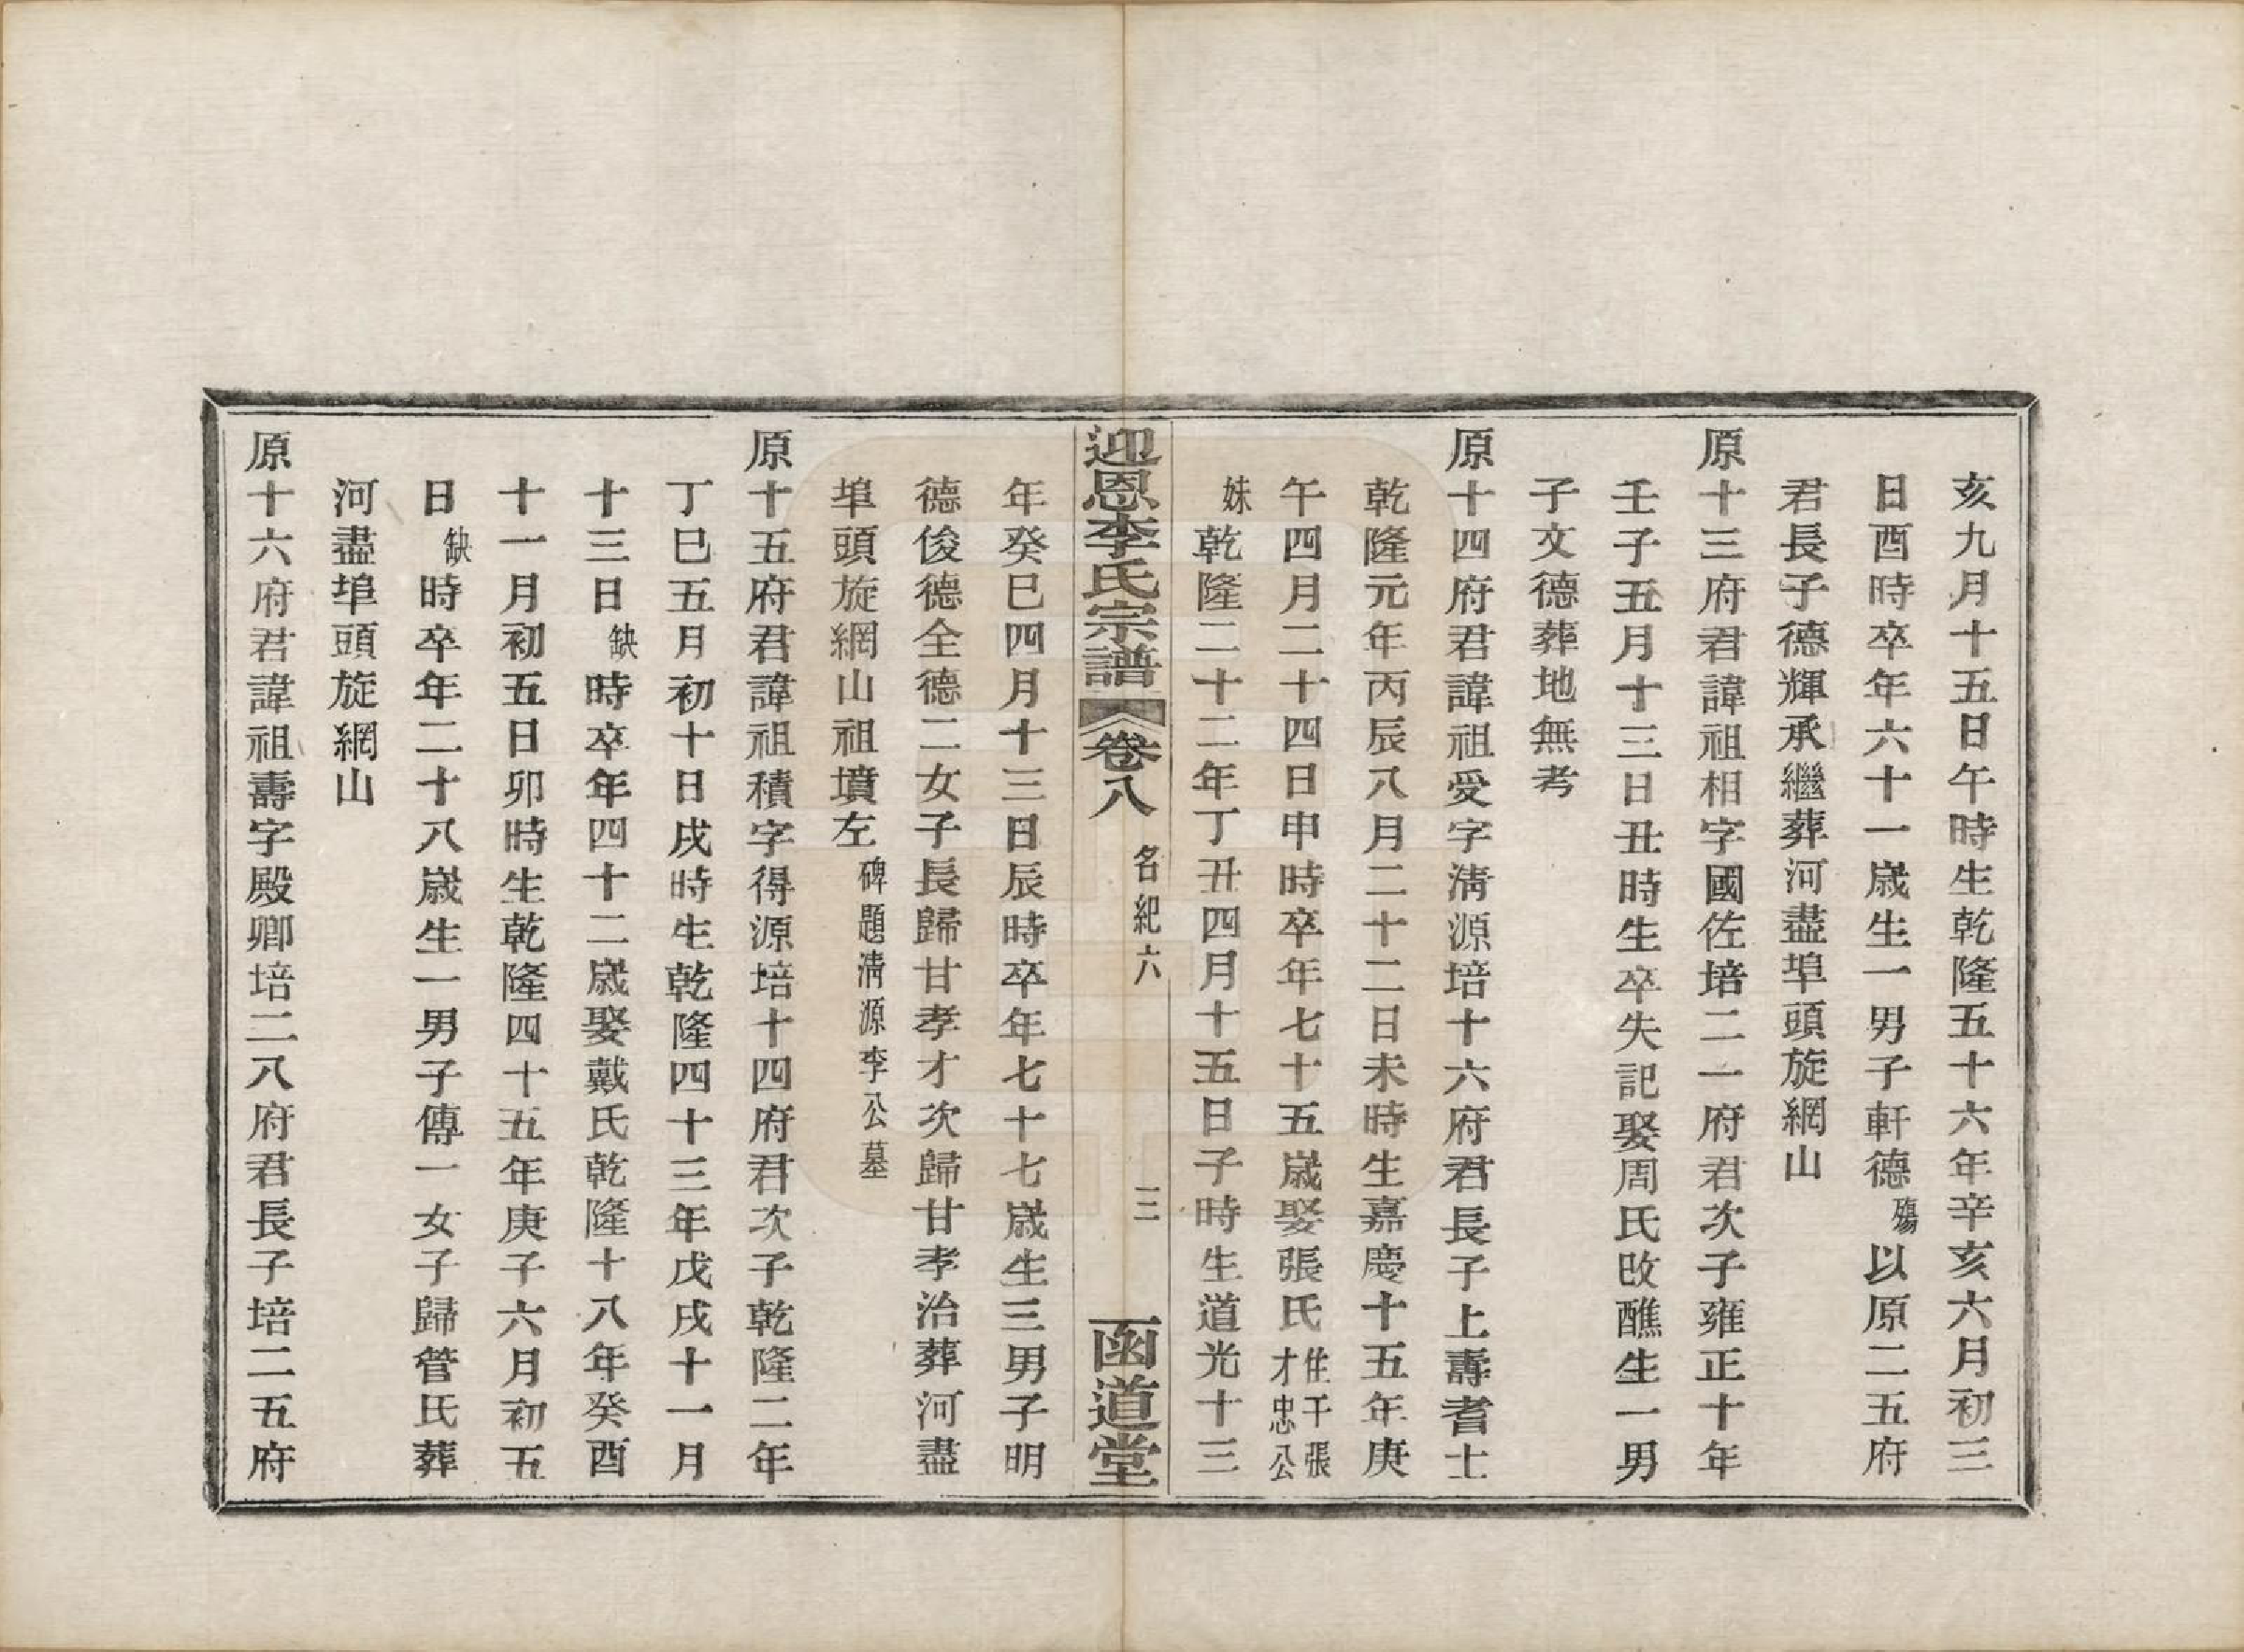 亥九月十五日午時生乾隆五十六年辛亥六月初三
日酉時卒年六十一歲生一男子軒德殤以原二五府
君長子德輝承繼葬河盡埠頭旋網山
原十三府君諱祖相字國佐培二一府君次子雍正十年
壬子五月十三日丑時生卒失記娶周氏改醮生一男
子文德葬地無考
原十四府君諱祖受字淸源培十六府君長子上壽耆士
乾隆元年丙辰八月二十二日未時生嘉慶十五年庚
午四月二十四日申時卒年七十五歲娶張氏住干張才忠公
妹乾隆二十二年丁丑四月十五日子時生道光十三
迎恩李氏宗譜 卷八 名紀六 三 函道堂
年癸巳四月十三日辰時卒年七十七歲生三男子明
德俊德全德二女子長歸甘孝才次歸甘孝治葬河盡
埠頭旋網山祖墳左碑題淸源李公墓
原十五府君諱祖積字得源培十四府君次子乾隆二年
丁巳五月初十日戌時生乾隆四十三年戊戌十一月
十三日缺時卒年四十二歲娶戴氏乾隆十八年癸酉
十一月初五日卯時生乾隆四十五年庚子六月初五
日缺時卒年二十八歲生一男子傳一女子歸管氏葬
河盡埠頭旋網山
原十六府君諱祖壽字殿卿培二八府君長子培二五府